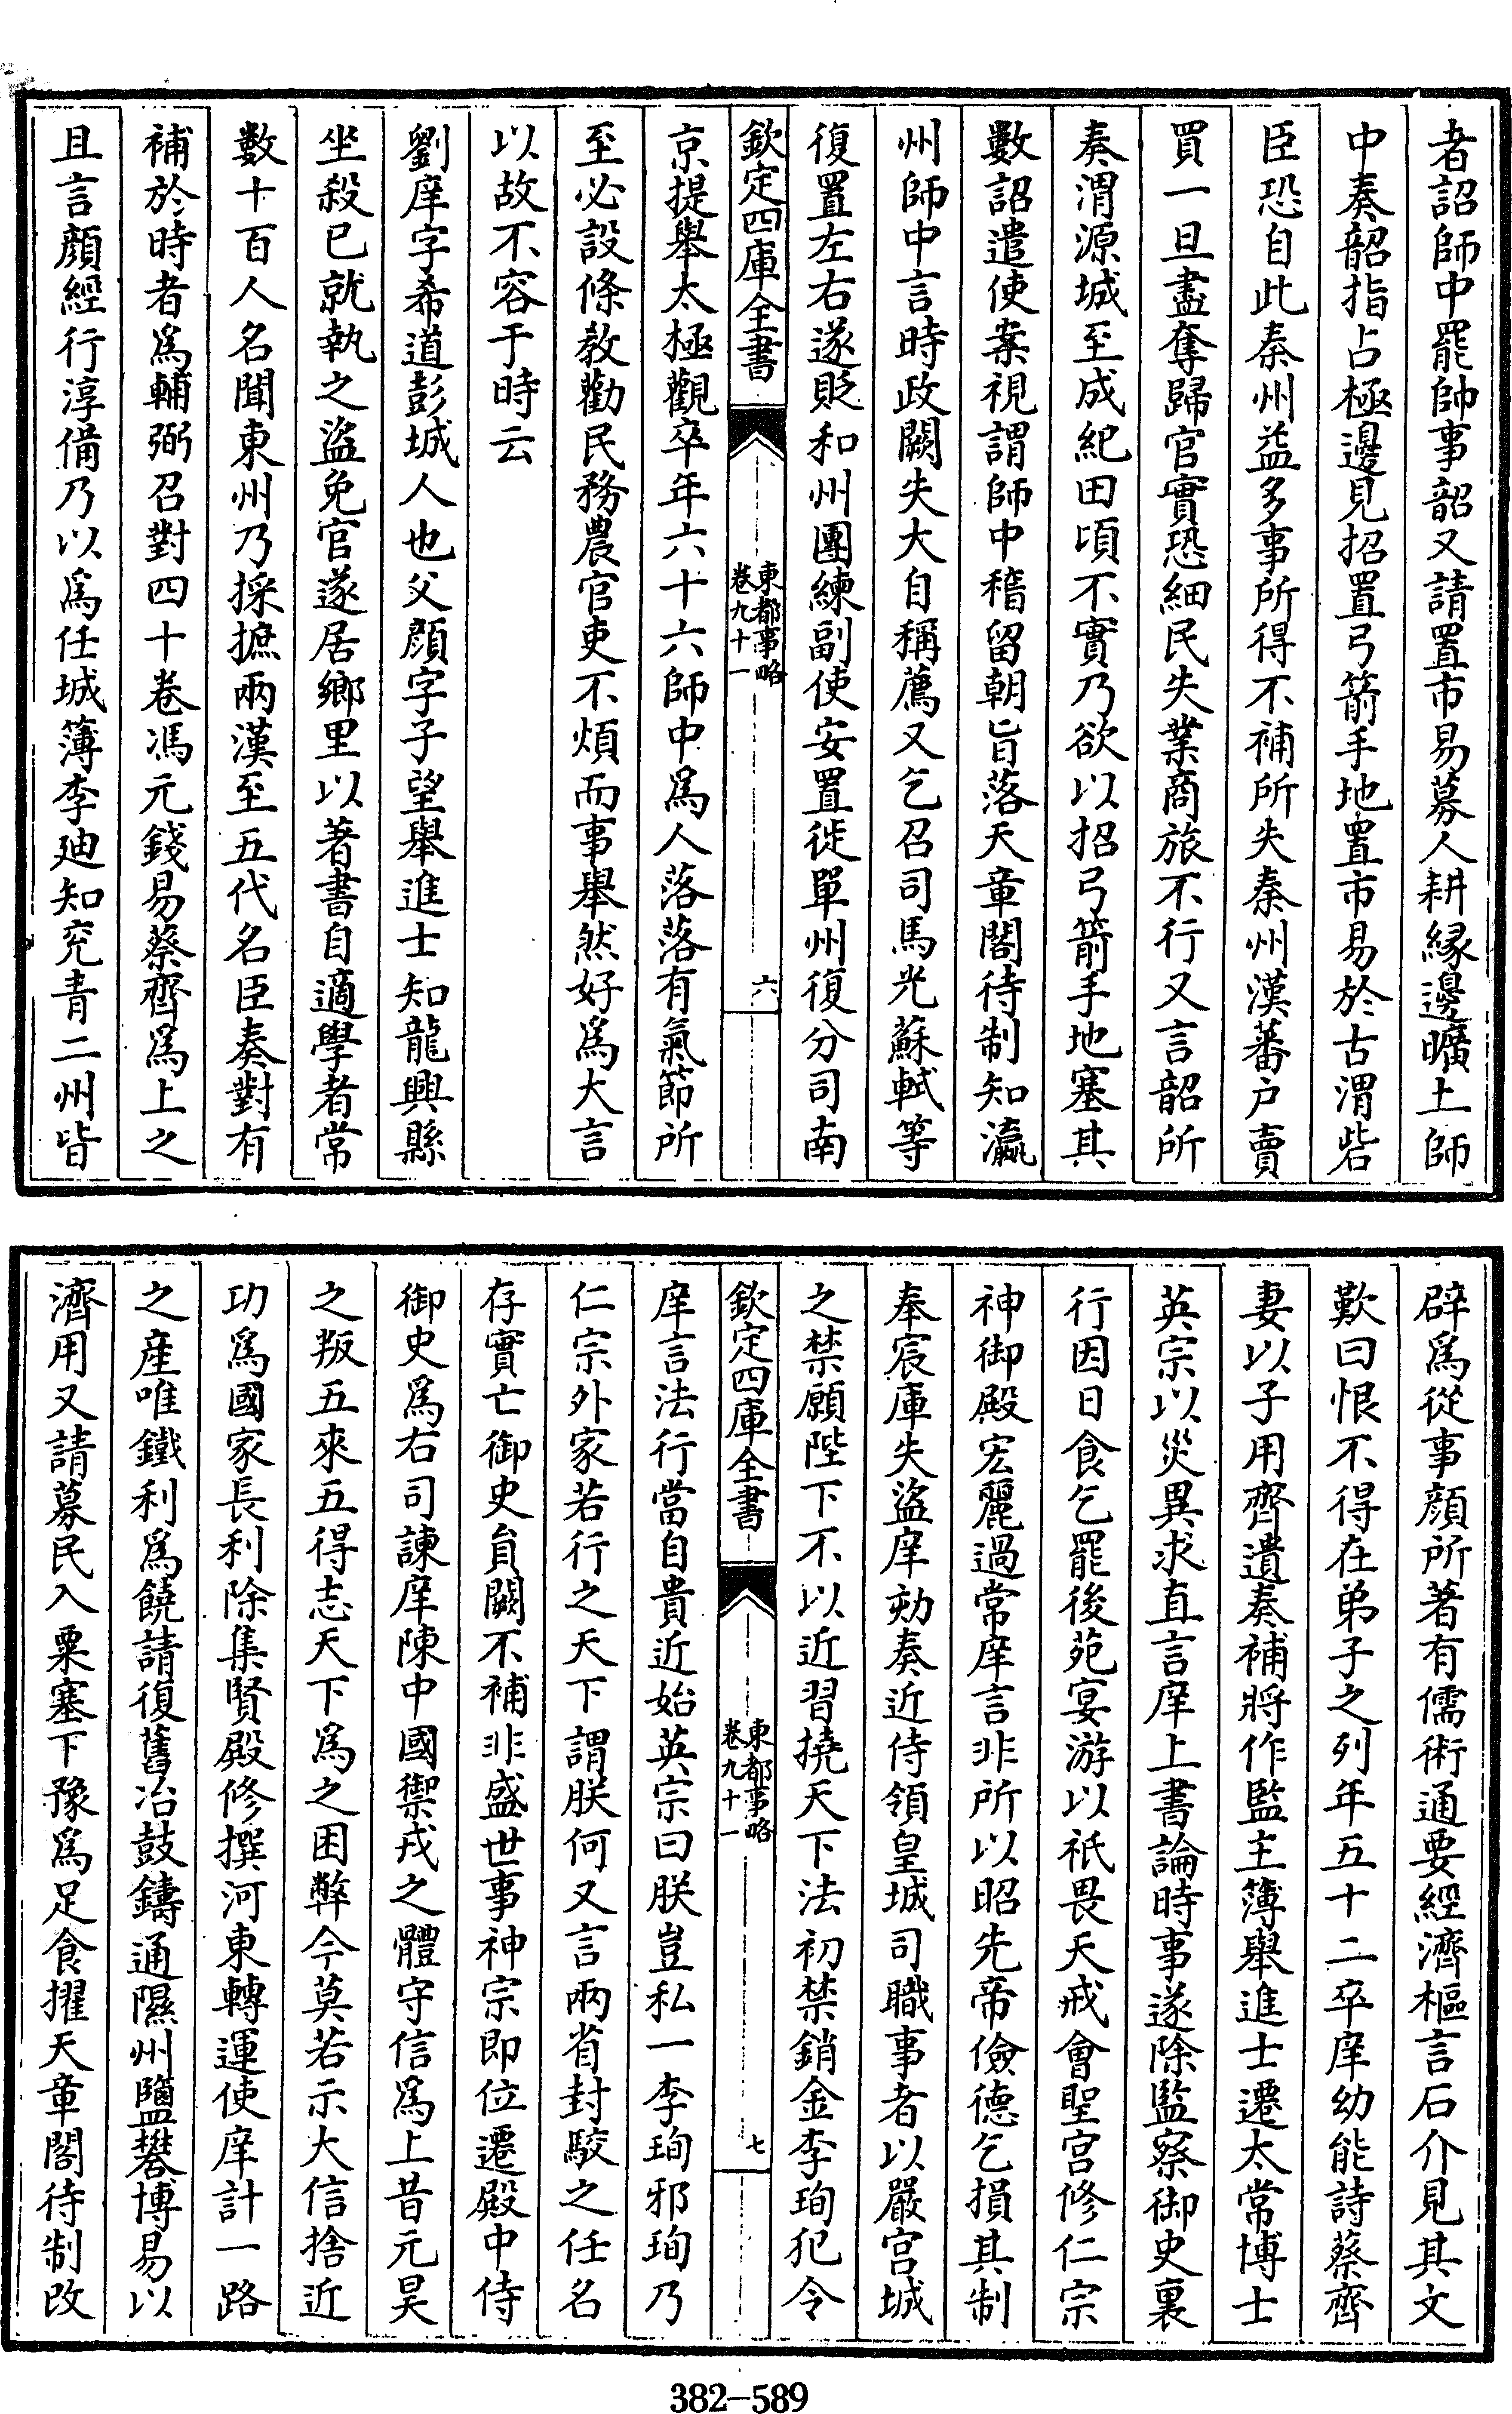 者詔師中罷帥事韶又請置市易募人耕縁邊曠土師
中奏韶指占極邊見招置弓箭手地置市易於古渭砦
臣恐自此秦州益多事所得不補所失秦州漢蕃户賣
買一旦盡奪歸官實恐細民失業商旅不行又言韶所
奏渭源城至成紀田頃不實乃欲以招弓箭手地塞其
數詔遣使案視謂師中稽留朝旨落天章閣待制知瀛
州師中言時政闕失大自稱薦又乞召司馬光蘇軾等
復置左右遂貶和州團練副使安置徙單州復分司南
欽定四庫全書
東都事略
卷九十一
六
京提舉太極觀卒年六十六師中爲人落落有氣節所
至必設條教勸民務農官吏不煩而事舉然好爲大言
以故不容于時云
劉庠字希道彭城人也父顔字子望舉進士知龍興縣
坐殺已就執之盜免官遂居鄉里以著書自適學者常
數十百人名聞東州乃採摭兩漢至五代名臣奏對有
補於時者爲輔弼召對四十卷馮元錢易蔡齊爲上之
且言顔經行淳備乃以爲任城簿李廸知兖青二州皆
辟爲從事顔所著有儒術通要經濟樞言石介見其文
歎曰恨不得在弟子之列年五十二卒庠幼能詩蔡齊
妻以子用齊遺奏補將作監主簿舉進士遷太常博士
英宗以災異求直言庠上書論時事遂除監察御史裏
行因日食乞罷後苑宴游以祇畏天戒會聖宫修仁宗
神御殿宏麗過常庠言非所以昭先帝儉德乞損其制
奉宸庫失盜庠劾奏近侍領皇城司職事者以嚴宫城
之禁願陛下不以近習撓天下法初禁銷金李珣犯令
欽定四庫全書
東都事略
卷九十一
七
庠言法行當自貴近始英宗曰朕豈私一李珣邪珣乃
仁宗外家若行之天下謂朕何又言兩省封駮之任名
存實亡御史員闕不補非盛世事神宗即位遷殿中侍
御史爲右司諫庠陳中國禦戎之體守信爲上昔元昊
之叛五來五得志天下爲之困弊今莫若示大信捨近
功爲國家長利除集賢殿修撰河東轉運使庠計一路
之産唯鐵利爲饒請復舊冶鼓鑄通隰州鹽礬博易以
濟用又請募民入粟塞下豫爲足食擢天章閣待制改
382-589